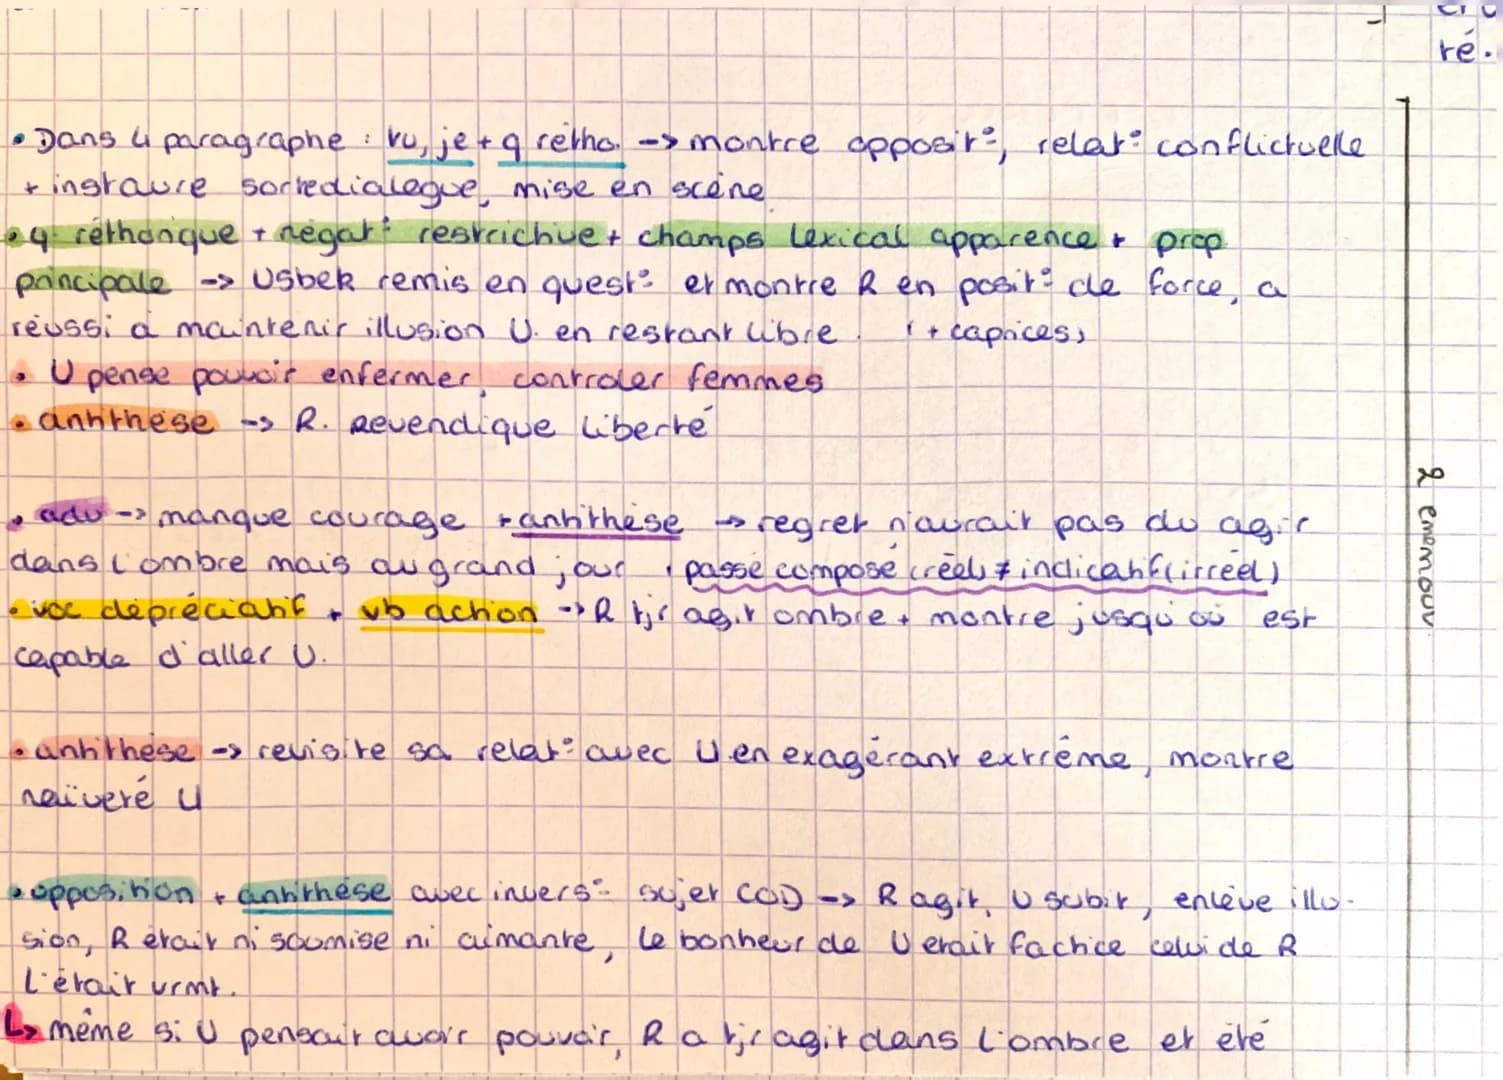 ré.
• Dans 4 paragraphe : tu, je + q rétho. -> montre opposit°, relat° conflictuelle
+ instaure sorte dialogue, mise en scène
• q réthorique + négat° restrictive + champs lexical apparence + prop
principale -> Usbek remis en quest° et montre R en posit° de force, a
réussi à maintenir illusion U. en restant libre. (+ caprices)
• U pense pouvoir enfermer, controler femmes
• antithèse -> R. Revendique liberté
• adv -> manque courage + antithèse -> regret n'aurait pas du agir
dans l'ombre mais au grand jour, passé composé (réel) ≠ indicatif (irréel)
• voc dépréciatif + vb action -> R tjr agit ombre + montre jusqu'où est
capable d'aller U.
• antithèse -> revisite sa relat° avec U en exagérant extrême, montre
naïveté U
• opposition + antithèse avec invers° sujet COD -> R agit, U subit, enlève illu-
sion, R était ni soumise ni aimante, le bonheur de U était factice celui de R
l'était vrmt.
↳ même si U pensait avoir pouvoir, R a tjr agit dans l'ombre et été
2 ememouv.